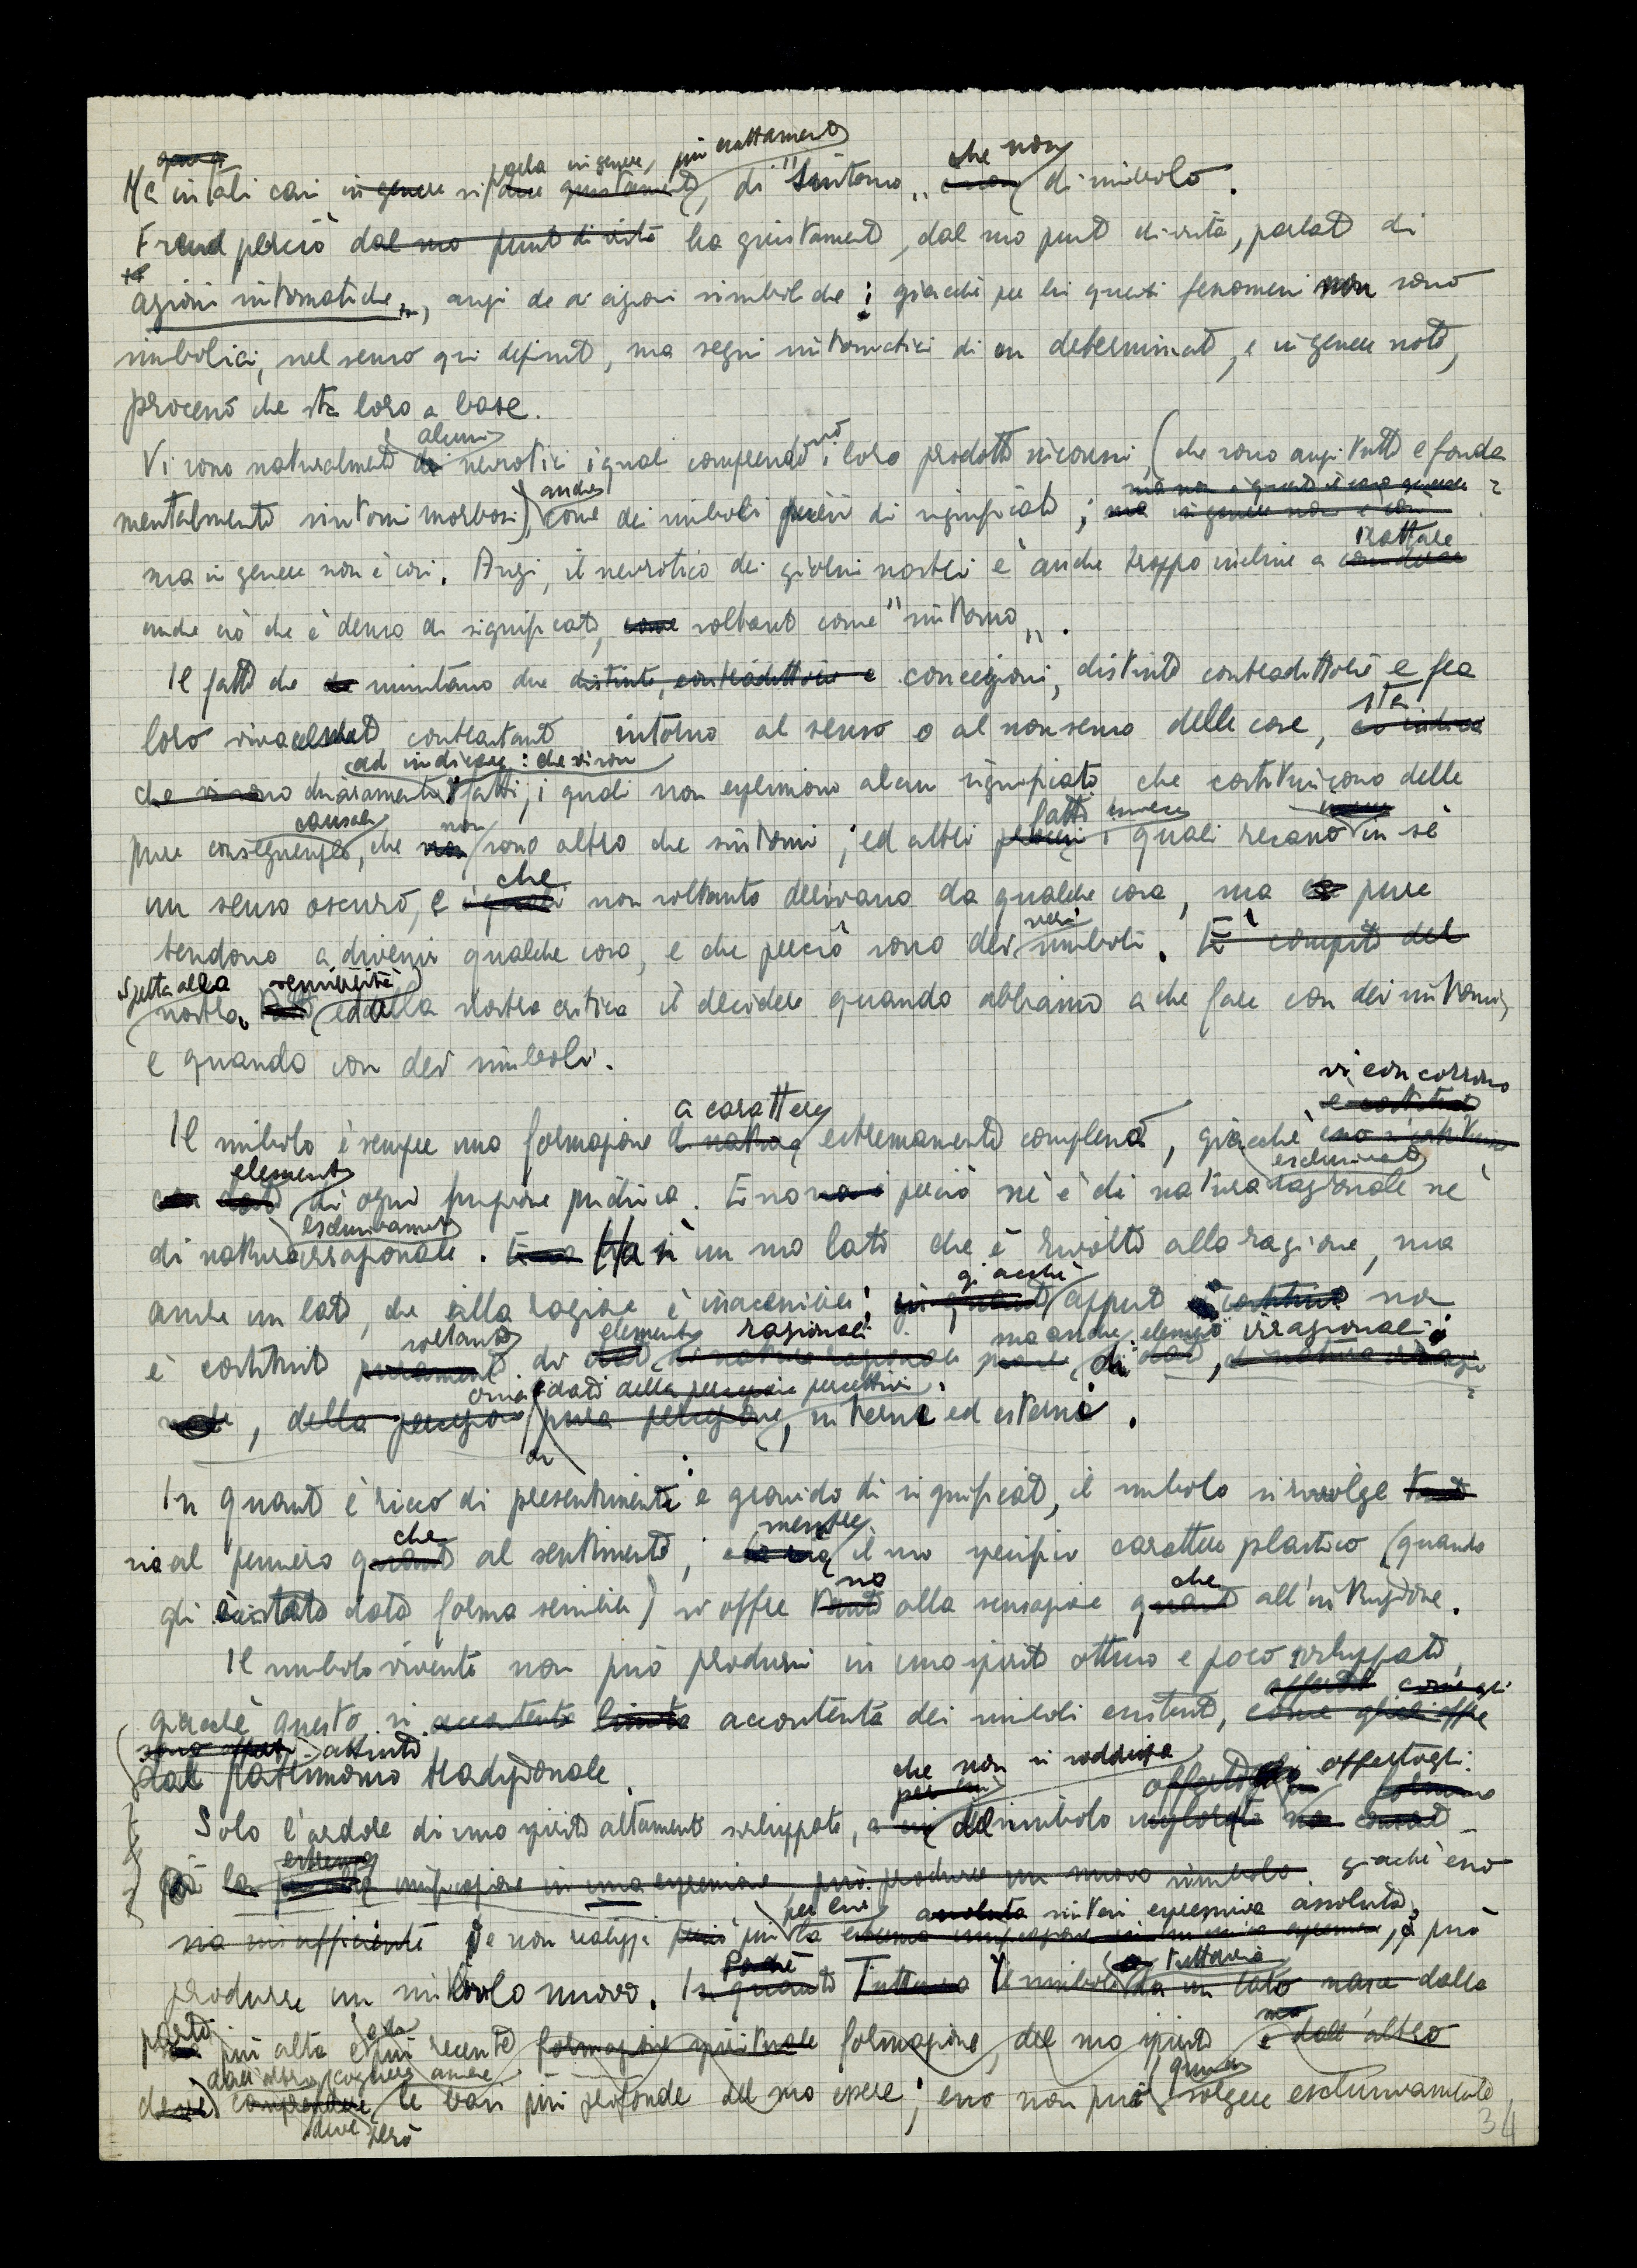 Ma in tali casi in genere si parla in genere, più esattamente, di "sintomo" che non di simbolo.
Freud perciò dal suo punto di vista ha giustamente, dal suo punto di vista, parlato di
"azioni sintomatiche", anzi che di azioni simboliche; giacché per lui questi fenomeni non sono
simbolici, nel senso qui definito, ma segni sintomatici di un determinato, e in genere noto,
processo che sta loro a base.
Vi sono naturalmente alcuni nevrotici i quali comprendono i loro prodotti inconsci, (che sono anzi tutto e fonda
mentalmente sintomi morbosi), anche come dei simboli pieni di significato; ma in genere non è così
ma in genere non è così. Anzi, il nevrotico dei giorni nostri è anche troppo incline a trattare
anche ciò che è denso di significato, come soltanto come "sintomo".
Il fatto che vi siano due distinte, contradittorie e concezioni, distinte contradittorie e fra
loro vivacemente contrastanti intorno al senso o al non senso delle cose, sta
ad indicare: che vi son
che vi sono chiaramente fatti, i quali non esprimono alcun significato, che costituiscono delle
pure conseguenze causali, che non sono altro che sintomi; ed altri fatti invece i quali recano in sé
un senso oscuro, e che non soltanto derivano da qualche cosa, ma pure
tendono a divenir qualche cosa, e che perciò sono dei veri simboli. È compito del
Spetta alla nostra sensibilità ed alla nostra critica il decidere quando abbiamo a che fare con dei sintomi,
e quando con dei simboli.
vi concorrono
Il simbolo è sempre una formazione a carattere estremamente complesso, giacché esso si costituisce
elementi di ogni funzione psichica. Esso perciò né è di natura esclusivamente razionale né
di natura esclusivamente irrazionale. Ha sì un suo lato che è rivolto alla ragione, ma
anche un lato, che alla ragione è inaccessibile; giacché appunto non
è costituito soltanto di elementi razionali ma anche di elementi irrazionali:
ossia dati della percezione percettivi, pura percezione, interni ed esterni.
In quanto è ricco di presentimenti e gravido di significato, il simbolo si rivolge tanto
sia al pensiero che al sentimento; mentre il suo specifico carattere plastico (quando
gli è stata data forma sensibile) si offre sia alla sensazione che all'intuizione.
Il simbolo vivente non può prodursi in uno spirito ottuso e poco sviluppato,
giacché questo si accontenta accontenta dei simboli esistenti, come glieli offre
attinti dal patrimonio tradizionale.
Solo l'ardore di uno spirito altamente sviluppato, che non si soddisfa del simbolo offertogli:
la unificazione in una espressione può produrre un nuovo simbolo. giacché esso
sia insufficiente e non realizzi più per lui la sintesi espressiva assoluta, può
produrre un simbolo nuovo. Poiché Tuttavia il simbolo tuttavia da un lato nasce dalla
parte più alta e più recente formazione spirituale formazione, del suo spirito e dall'altro
deve però dall'altro cogliere anche le basi più profonde del suo essere; esso non può quindi sorgere esclusivamente
34